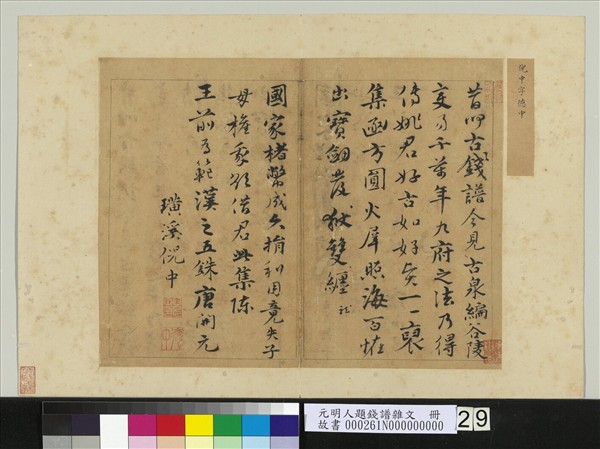 倪中字德中
昔聞古錢譜今見古泉編谷陵
變易千萬年九府之法乃得
傳姚君好古如好賢一一裒
集函方圓火犀照海百怪
出寶劒發獄雙纏龍
國家楮幣歲久捐利用竟失子
母權我欲借君此集陳
王前為範漢之五銖唐開元
璜溪倪中
元明人題錢譜雜文 冊
故書 000261N000000000
29